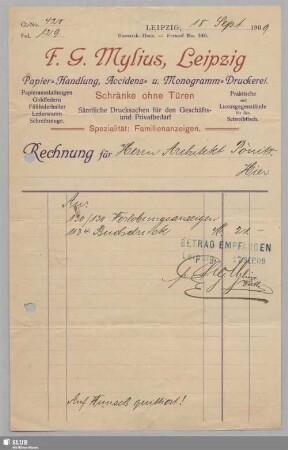 G.-No. 428
Fol. 1219
LEIPZIG, 15 Sept 1909
F. G. Mylius, Leipzig
Papier-Handlung, Accidenz- u. Monogramm-Druckerei.
Papierausstattungen
Goldfedern
Füllfederhalter
Lederwaren
Schreibzeuge.
Schränke ohne Türen
Sämtliche Drucksachen für den Geschäfts-
und Privatbedarf
Praktische
und
Luxusgegenstände
für den
Schreibtisch.
Spezialität: Familienanzeigen.
Rechnung für Herrn Architekt Pönitz
Hier
An:
130/130 Verlobungsanzeigen
1134 Buchdruck M. 21.-
BETRAG EMPFANGEN
Leipzig
F. G. Mylius
Auf Wunsch quittiert!
SLUB